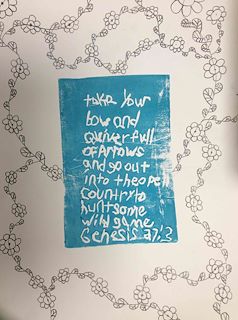 take Your
bow and
quiver full
of Arrows
and go out
into the open
Country to
hunt some
wild game
Genesis 27:3